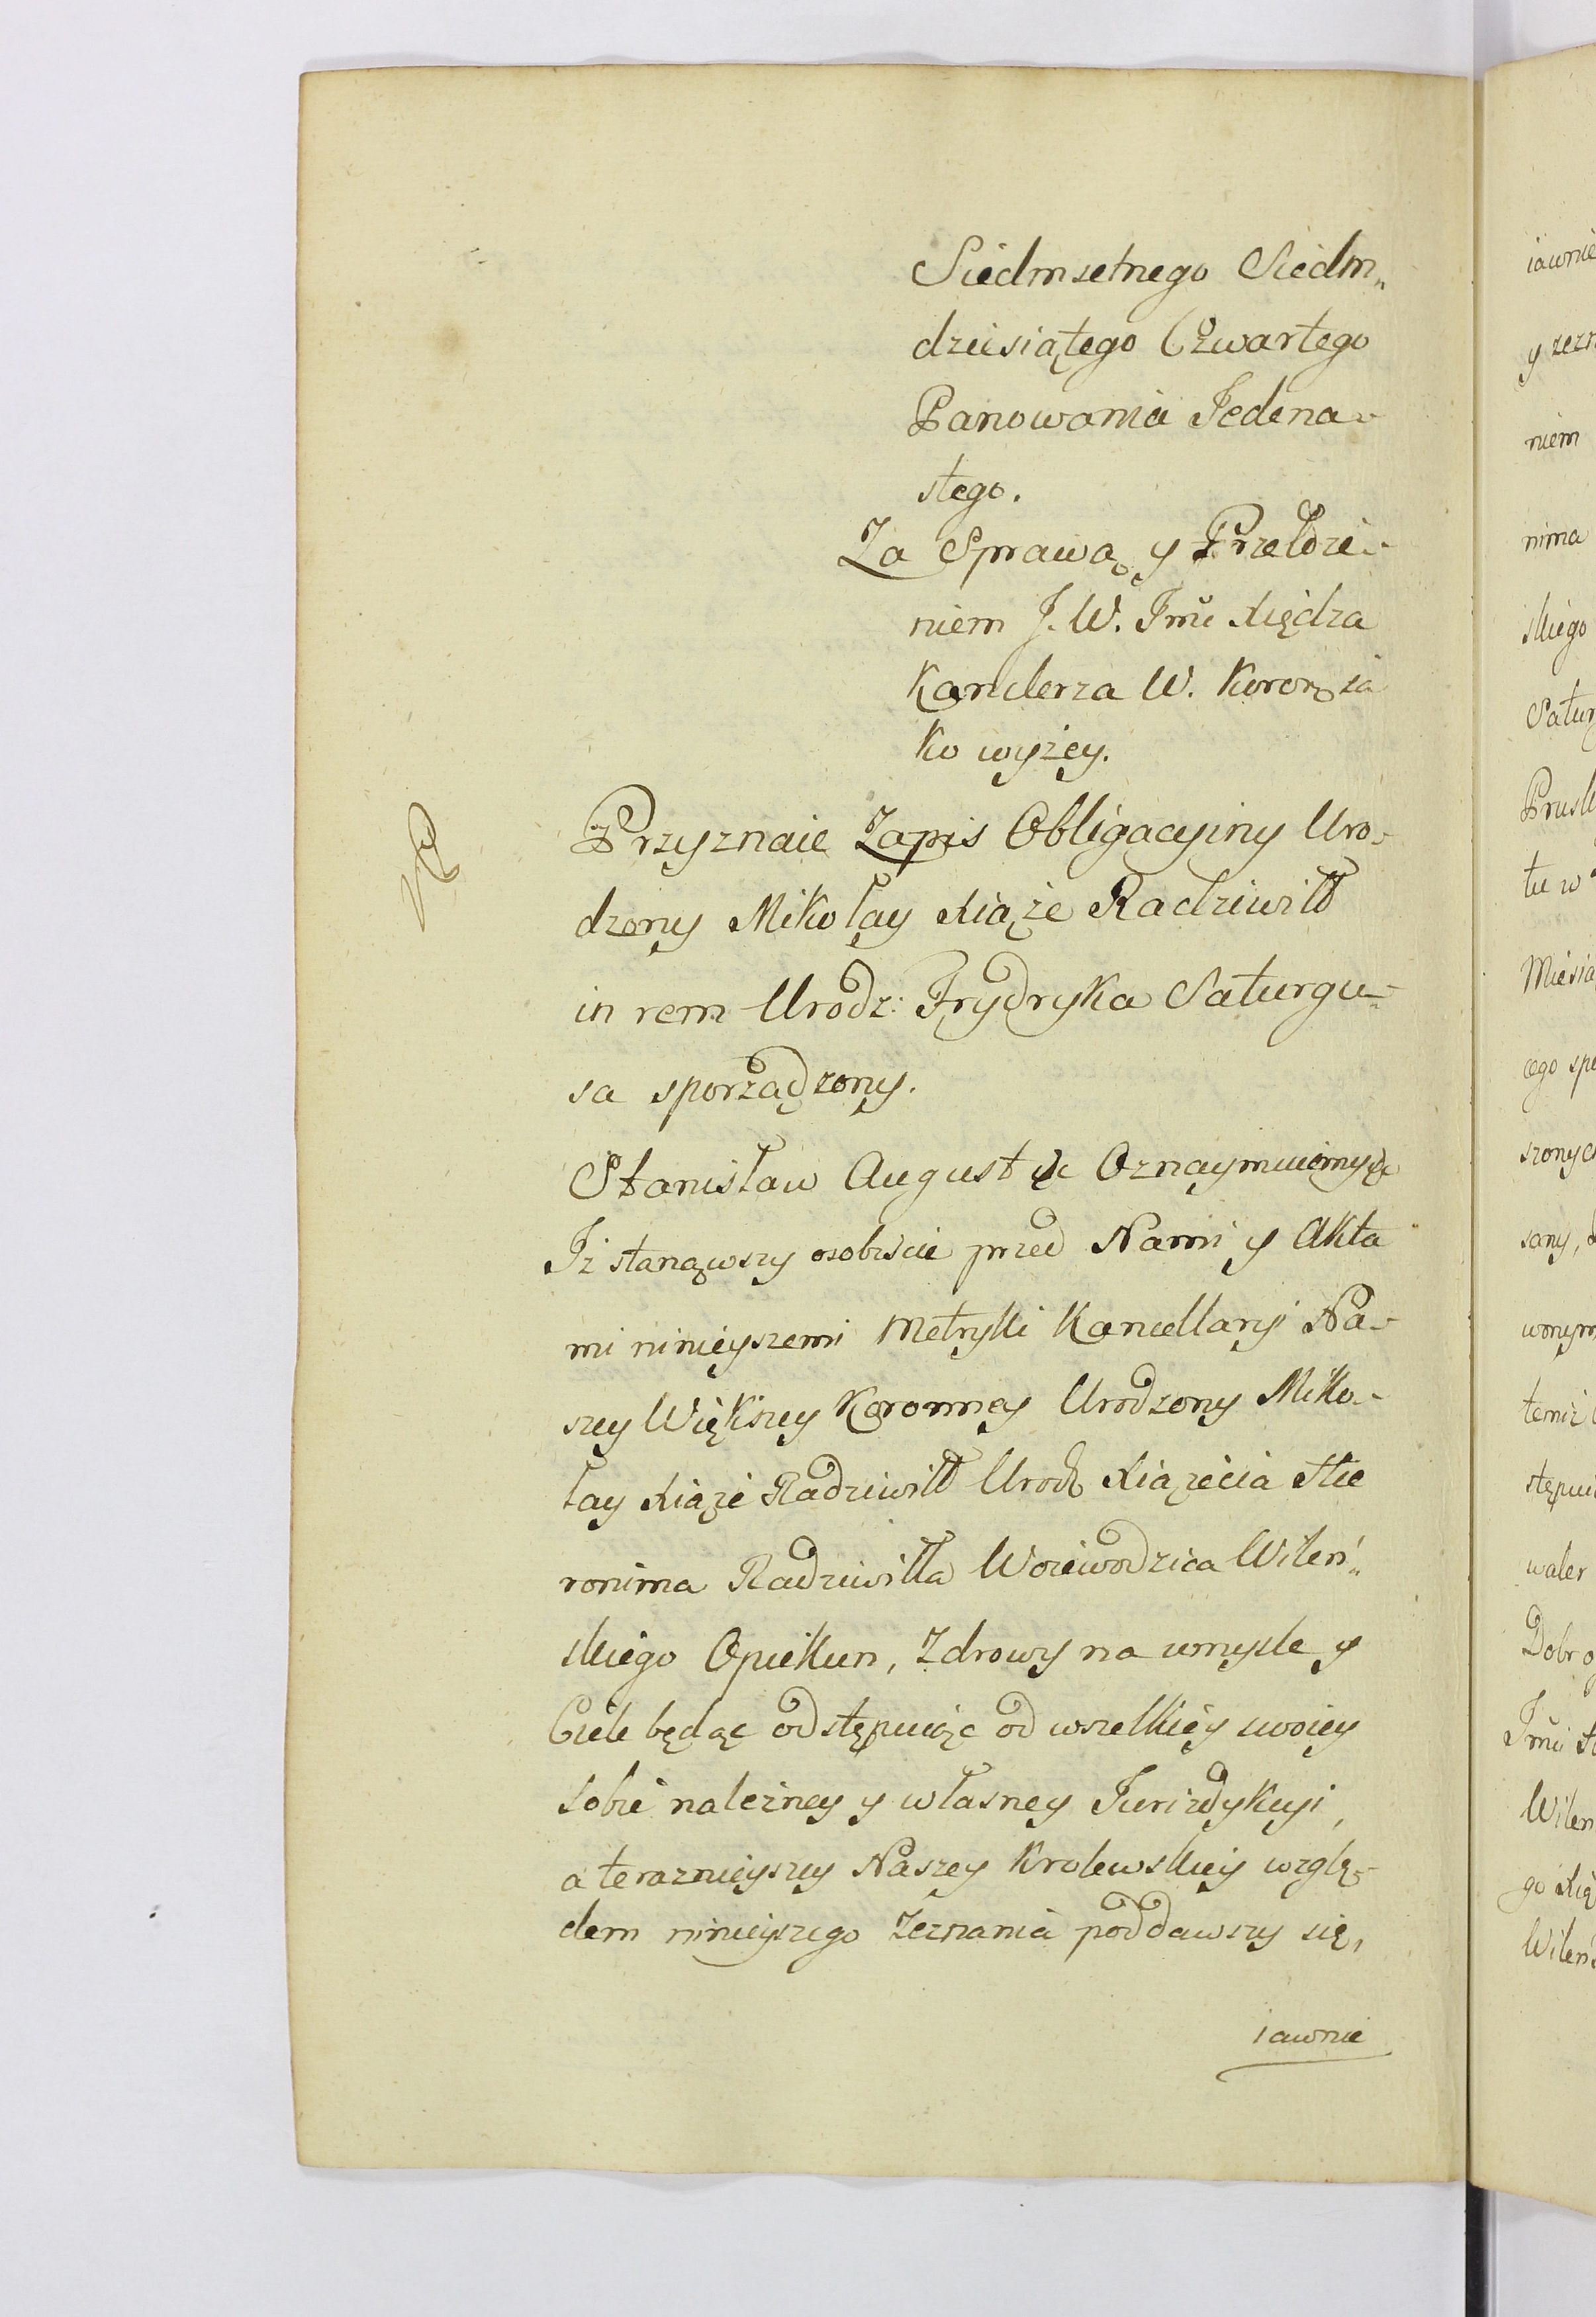 Siedmsetnego Siedm„
dziesiątego Czwartego
Panowania Jedena-
stego.
Za Sprawą y Przełoże-
niem J. W. Jmć Xiędza
Kanclerza W. Koron: ia
ko wyżey.
Przyznaie Zapis Obligacyiny Uro-
dzony Mikołay Xiąże Radziwiłł
in rem Urodz: Frydryka Saturgu-
sa sporządzony.
Stanisław August &c Oznaymuiemy &c
Iż stanąwszy osobiście przed Nami y Akta
mi ninieyszemi Metryki Kancellaryi Na-
szey Większey Koronney Urodzony Miko-
łay Xiąże Radziwiłł Urodz Xiążecia Hie
ronima Radziwiłła Woiewodzica Wileń„
skiego Opiekun, Zdrowy na umyśle y
Ciele będąc odstępuiąc od wszelkiey swoiey
sobie należney y własney Jurizdykcyi,
a terazniejszey Naszey Krolewskiey wzglę-
dem ninieyszego Zeznania poddawszy się,
iawnie
iawnie
y zezn
niem
nima
skiego
Satur
Prusk
tu w
Miesią
cego spe
szonych
sany,
wnym
temiż
stępui
waler
Dobr o
Jmć
Wilen
go Xią
Wileńs